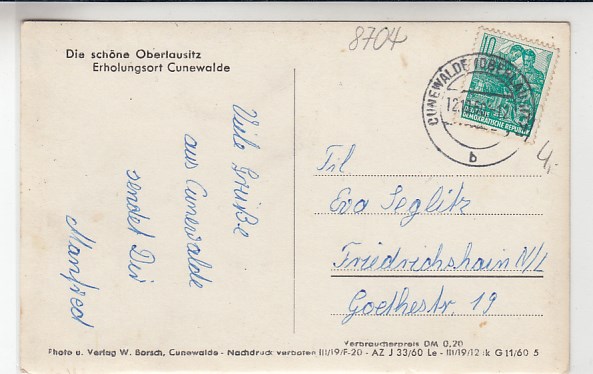 8704
Die schöne Oberlausitz
Erholungsort Cunewalde
Viele Grüße
aus Cunewalde
sendet Dir
Manfred
10
DEMOKRATISCHE REPUBLIK
CUNEWALDE (OBERLAUSITZ)
b
4,-
Frl
Eva Seglitz
Friedrichshain N/L
Goethestr. 19
Verbraucherpreis DM 0,20
Photo u. Verlag W. Borsch, Cunewalde - Nachdruck verboten III/19/F-20 - AZ J 33/60 Le - III/19/12 k G 11/60 5